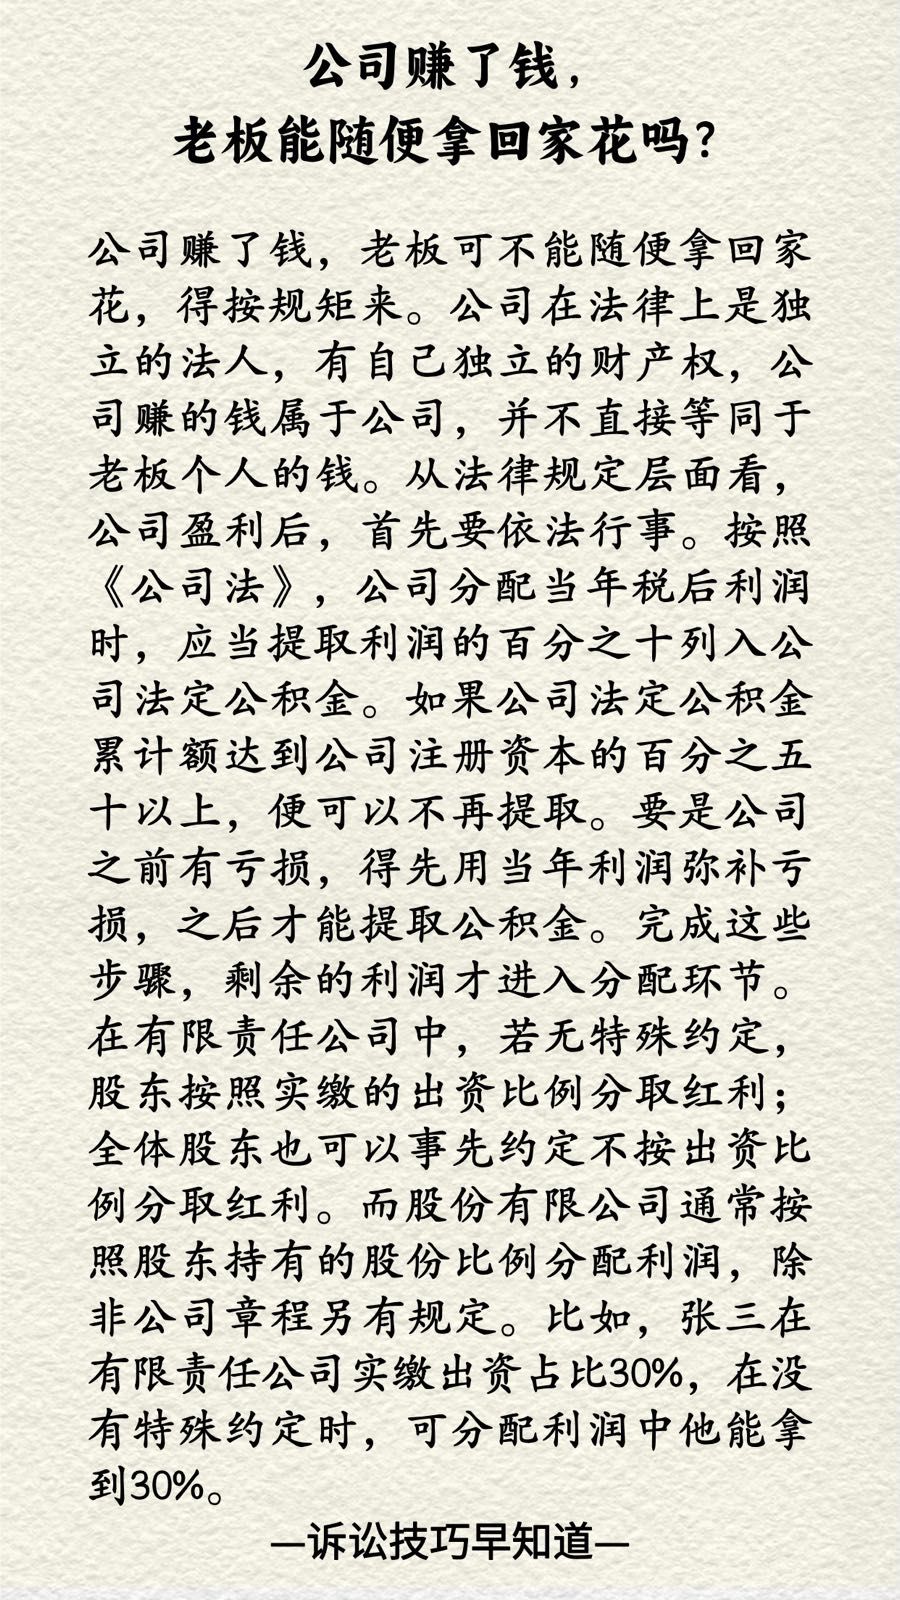 公司赚了钱，
老板能随便拿回家花吗？
公司赚了钱，老板可不能随便拿回家
花，得按规矩来。公司在法律上是独
立的法人，有自己独立的财产权，公
司赚的钱属于公司，并不直接等同于
老板个人的钱。从法律规定层面看，
公司盈利后，首先要依法行事。按照
《公司法》，公司分配当年税后利润
时，应当提取利润的百分之十列入公
司法定公积金。如果公司法定公积金
累计额达到公司注册资本的百分之五
十以上，便可以不再提取。要是公司
之前有亏损，得先用当年利润弥补亏
损，之后才能提取公积金。完成这些
步骤，剩余的利润才进入分配环节。
在有限责任公司中，若无特殊约定，
股东按照实缴的出资比例分取红利；
全体股东也可以事先约定不按出资比
例分取红利。而股份有限公司通常按
照股东持有的股份比例分配利润，除
非公司章程另有规定。比如，张三在
有限责任公司实缴出资占比30%，在没
有特殊约定时，可分配利润中他能拿
到30%。
—诉讼技巧早知道—